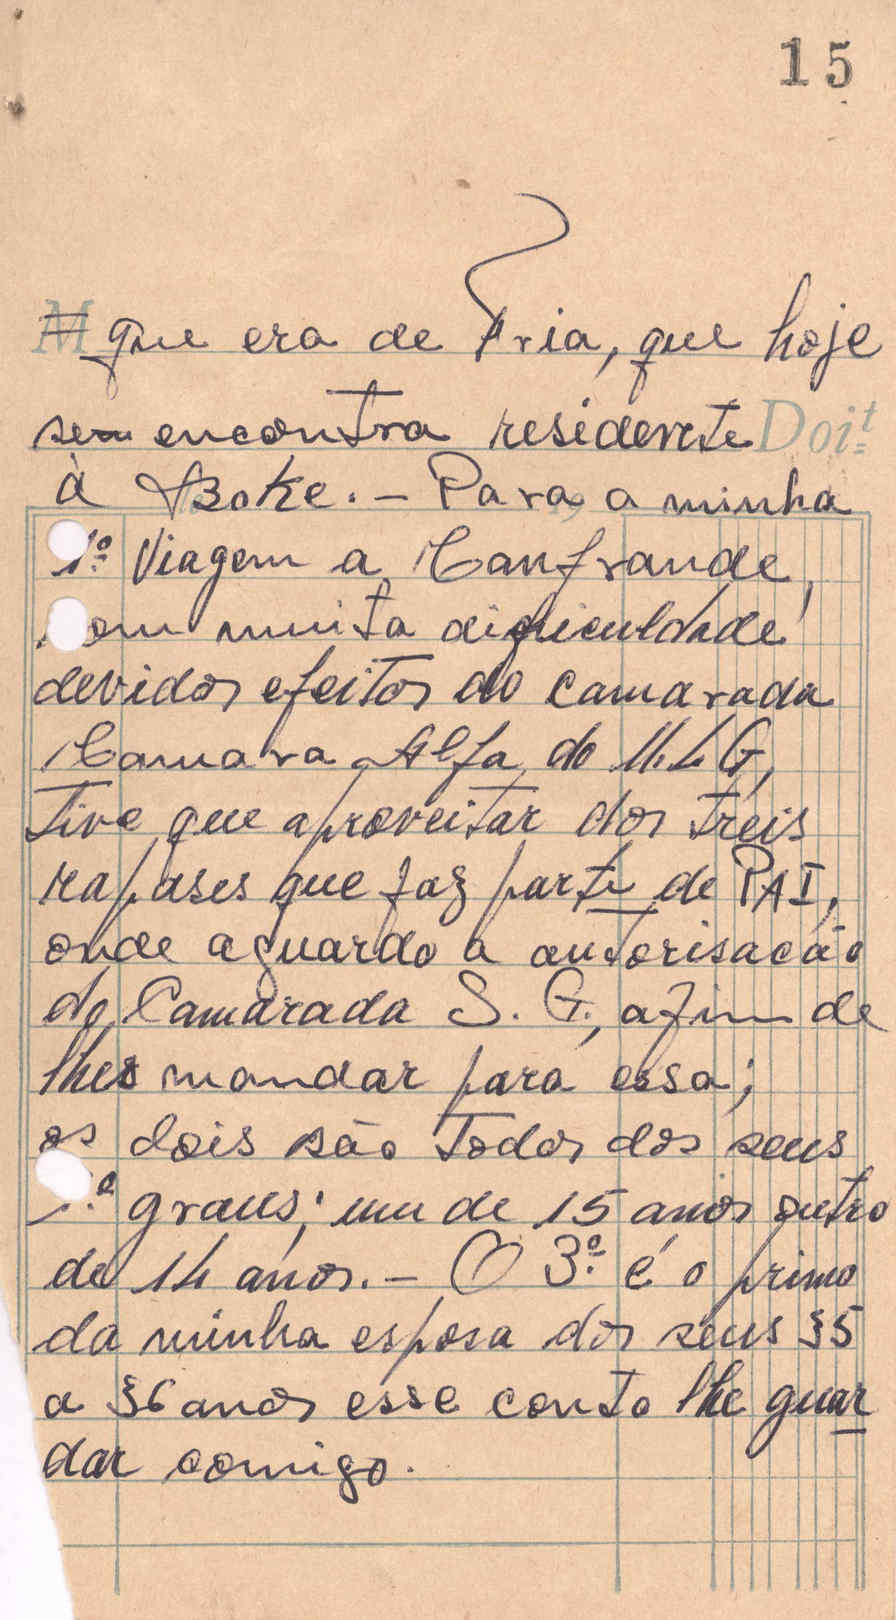 15
M que era de Fria, que hoje
se encontra residente Doit
à Boke. - Para a minha
1º Viagem a Canfrande,
com muita dificuldade
devidos efeitos do camarada
Camara Alfa do M.L.G,
Tive que aproveitar dos treis
rapases que faz parte de PAI,
onde aguardo a autorisacão
do Camarada S. G., afim de
lhes mandar para essa;
os dois são Todos dos seus
graus; um de 15 anos outro
de 14 anos. - O 3º é o primo
da minha esposa dos seus 35
a 36 anos esse conto lhe guar
dar comigo.